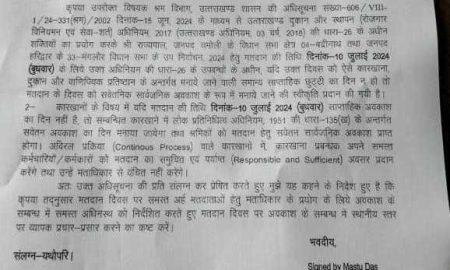 कृपया उपरोक्त विषयक श्रम विभाग, उत्तराखण्ड शासन की अधिसूचना संख्या-606 / VIII-
1 / 24-331(श्रम) / 2002 दिनांक-15 जून, 2024 के माध्यम से उत्तराखण्ड दुकान और स्थापन (रोजगार
विनियमन एवं सेवा-शर्त) अधिनियम, 2017 (उत्तराखण्ड अधिनियम, 03 वर्ष, 2018) की धारा-26 के अधीन
शक्तियों का प्रयोग करके श्री राज्यपाल, जनपद चमोली के विधान सभा क्षेत्र 04-बद्रीनाथ तथा जनपद
हरिद्वार के 33-मंगलौर विधान सभा के उप निर्वाचन, 2024 हेतु मतदान की तिथि दिनांक-10 जुलाई 2024
(बुधवार) के लिए उक्त अधिनियम की धारा-26 के उपबन्धों के अधीन, यदि उक्त दिवस को ऐसे कारखाना,
दुकान और वाणिज्यिक प्रतिष्ठान के अन्तर्गत मनाये जाने वाली सामान्य साप्ताहिक छुट्टी का दिन न हो तो
मतदान के दिवस को सवेतनिक सार्वजनिक अवकाश के रूप में मनाये जाने की स्वीकृति प्रदान की गयी है।
2- कारखानों के विषय में यदि मतदान की तिथि दिनांक-10 जुलाई 2024 (बुधवार) साप्ताहिक अवकाश
का दिन नहीं है, तो सम्बन्धित कारखाने में लोक प्रतिनिधित्व अधिनियम, 1951 की धारा-135(ख) के अन्तर्गत
सवेतन अवकाश का दिन मनाया जायेगा तथा श्रमिकों को मतदान हेतु सवेतन सार्वजनिक अवकाश प्राप्त
होगा। अविरल प्रक्रिया (Continous Process) वाले कारखानों में, कारखाना प्रबन्धक अपने समस्त
कर्मचारियों / कर्मकारों को मतदान का समुचित एवं पर्याप्त (Responsible and Sufficient) अवसर प्रदान
करेंगे तथा उन्हें मताधिकार से वंचित नहीं करेंगे।
अतः उक्त अधिसूचना की प्रति संलग्न कर प्रेषित करते हुए मुझे यह कहने के निदेश हुए है कि
कृपया तद्नुसार मतदान दिवस पर समस्त अर्ह मतदाताओं हेतु मताधिकार के प्रयोग के लिये अवकाश के
सम्बन्ध में समस्त अधिनस्थ को निर्देशित करते हुए मतदान दिवस पर अवकाश के सम्बन्ध में स्थानीय स्तर
पर व्यापक प्रचार-प्रसार करने का कष्ट करें।
भवदीय,
संलग्न-यथोपरि।
Signed by Mastu Das